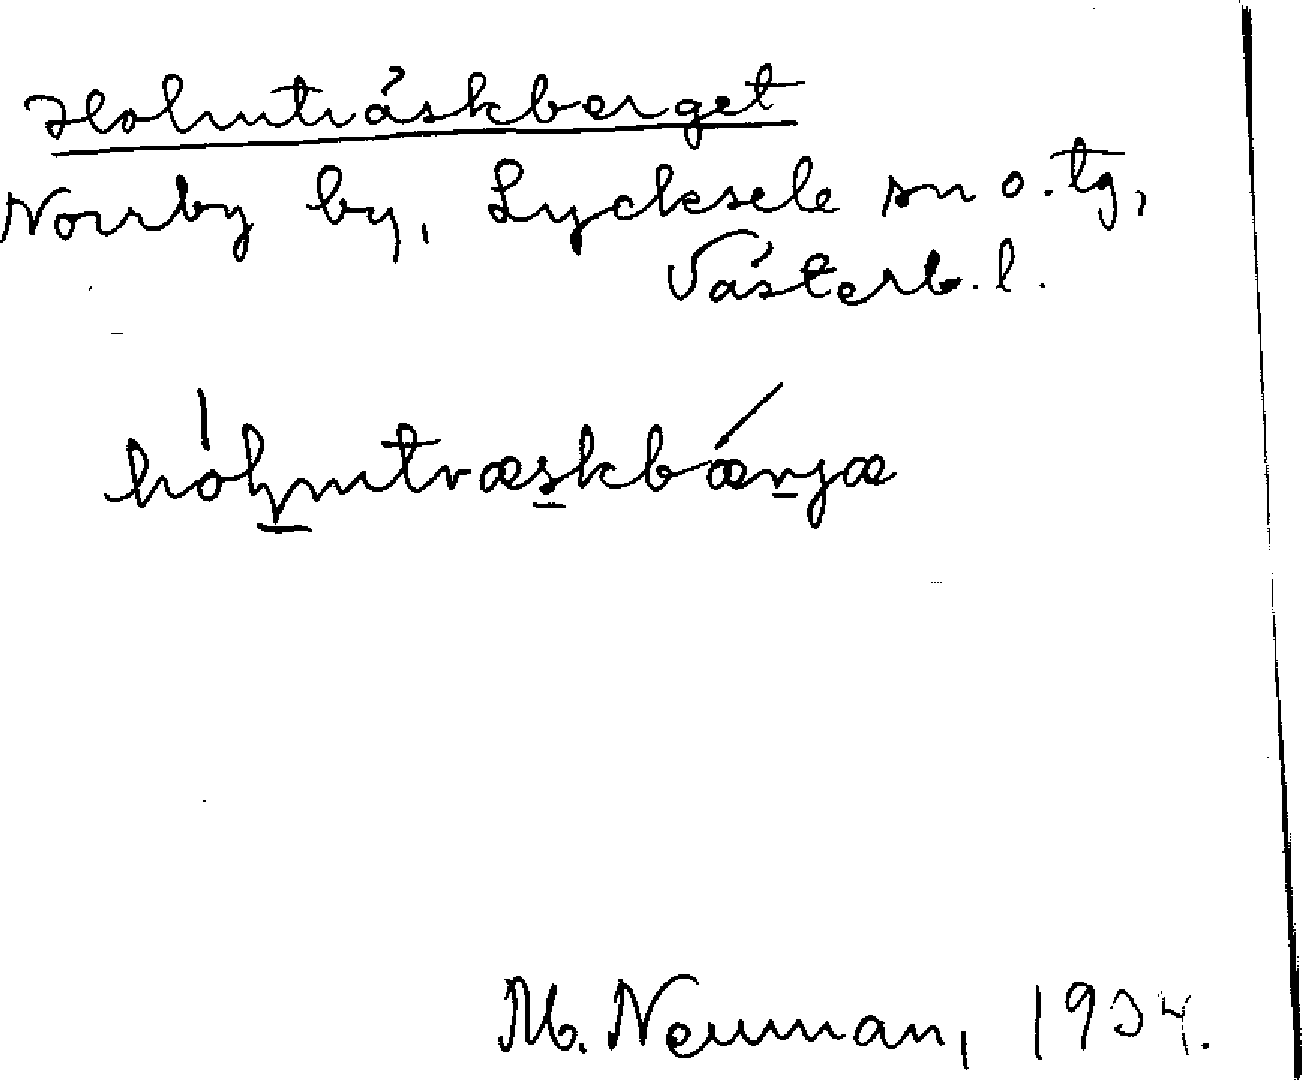 Holmträskberget
Norrby by, Lycksele sn o. tg,
Västerb. l.
hólmtræskbǽrjæ
M. Neuman, 1934.